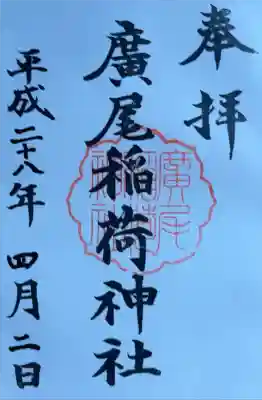 奉拝
廣尾稲荷神社
平成二十八年 四月二日